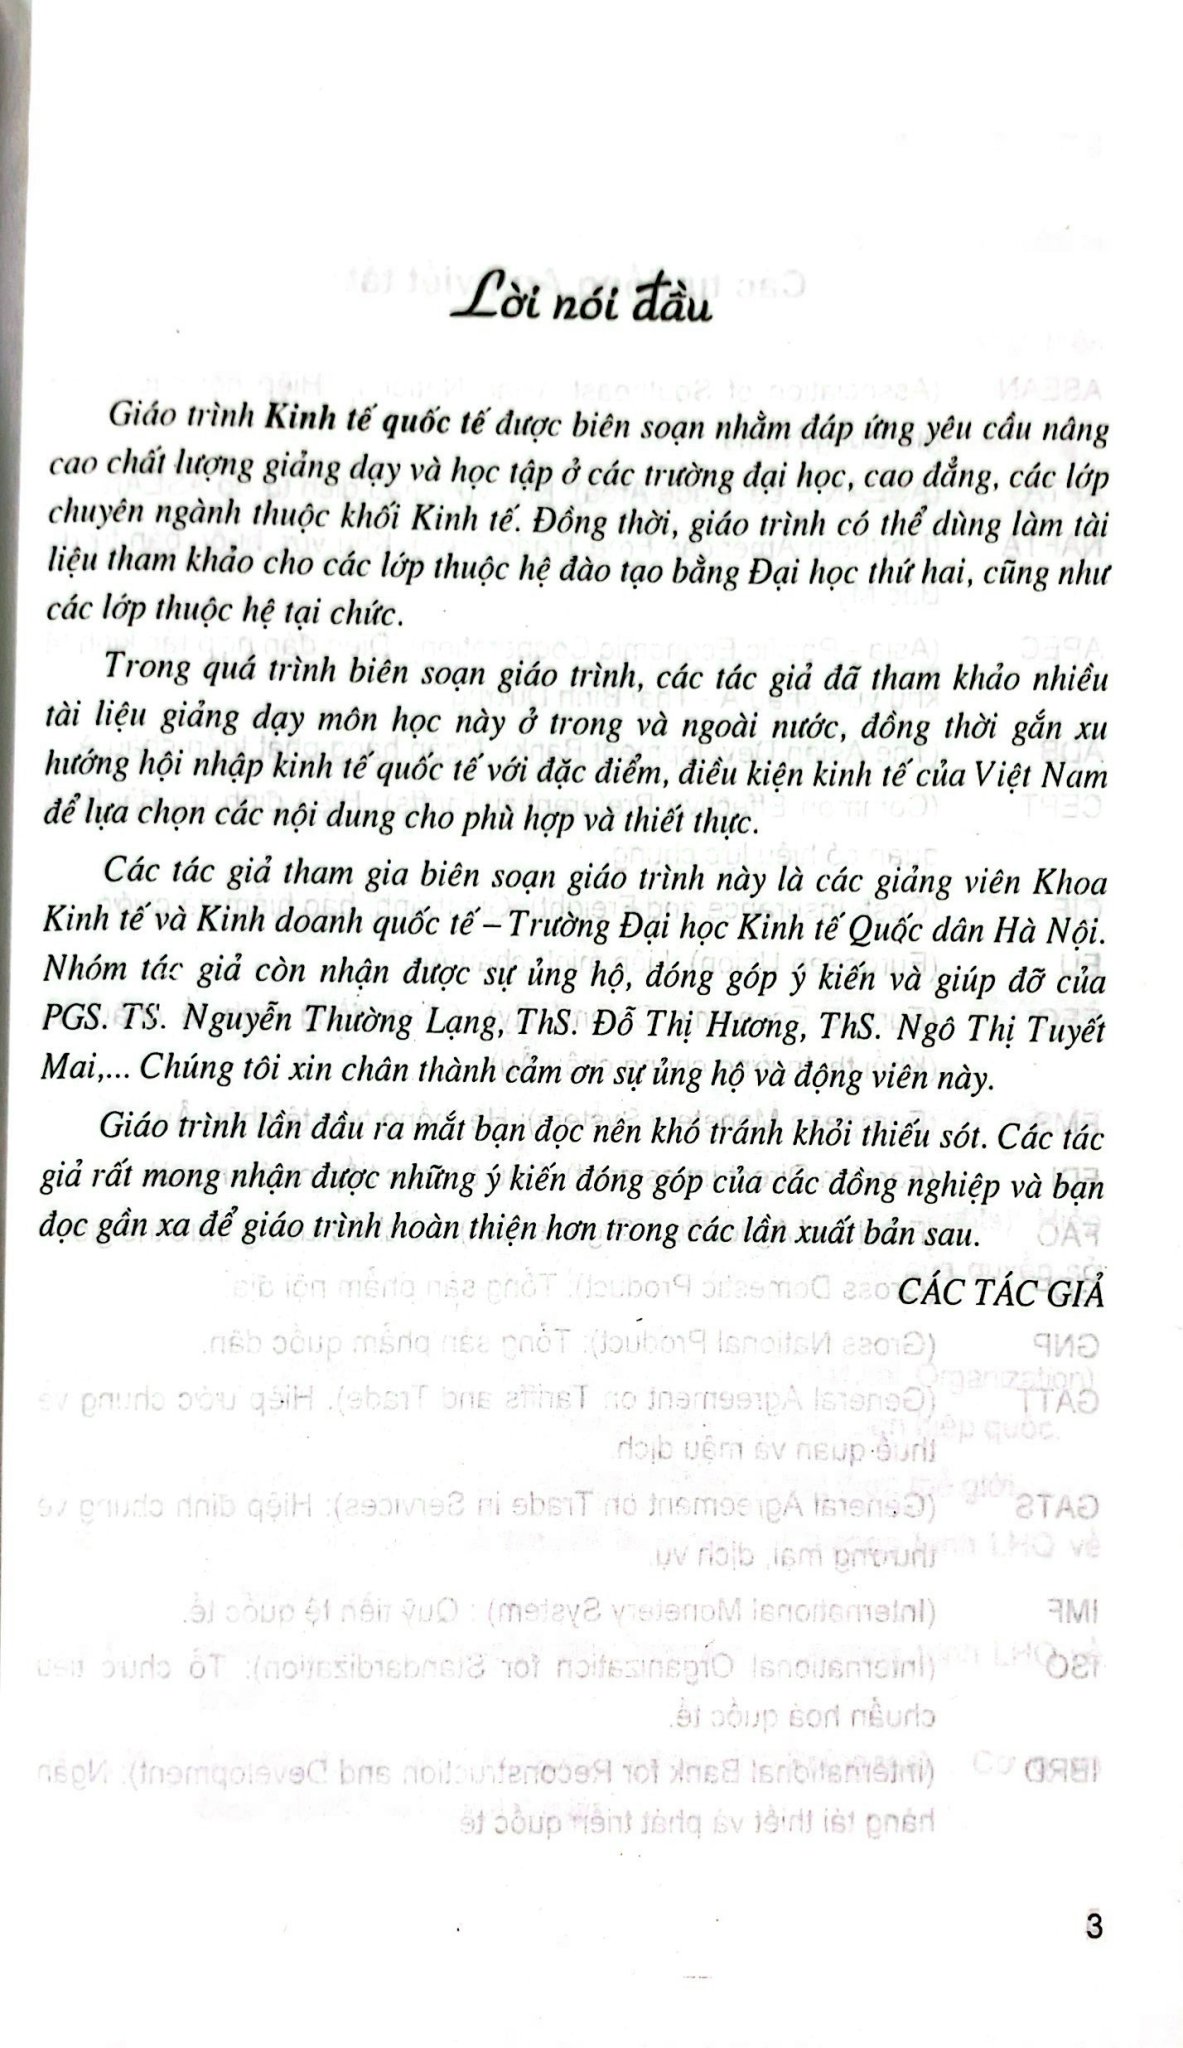 Lời nói đầu
Giáo trình Kinh tế quốc tế được biên soạn nhằm đáp ứng yêu cầu nâng
cao chất lượng giảng dạy và học tập ở các trường đại học, cao đẳng, các lớp
chuyên ngành thuộc khối Kinh tế. Đồng thời, giáo trình có thể dùng làm tài
liệu tham khảo cho các lớp thuộc hệ đào tạo bằng Đại học thứ hai, cũng như
các lớp thuộc hệ tại chức.
Trong quá trình biên soạn giáo trình, các tác giả đã tham khảo nhiều
tài liệu giảng dạy môn học này ở trong và ngoài nước, đồng thời gắn xu
hướng hội nhập kinh tế quốc tế với đặc điểm, điều kiện kinh tế của Việt Nam
để lựa chọn các nội dung cho phù hợp và thiết thực.
Các tác giả tham gia biên soạn giáo trình này là các giảng viên Khoa
Kinh tế và Kinh doanh quốc tế – Trường Đại học Kinh tế Quốc dân Hà Nội.
Nhóm tác giả còn nhận được sự ủng hộ, đóng góp ý kiến và giúp đỡ của
PGS. TS. Nguyễn Thường Lạng, ThS. Đỗ Thị Hương, ThS. Ngô Thị Tuyết
Mai,... Chúng tôi xin chân thành cảm ơn sự ủng hộ và động viên này.
Giáo trình lần đầu ra mắt bạn đọc nên khó tránh khỏi thiếu sót. Các tác
giả rất mong nhận được những ý kiến đóng góp của các đồng nghiệp và bạn
đọc gần xa để giáo trình hoàn thiện hơn trong các lần xuất bản sau.
CÁC TÁC GIẢ
3